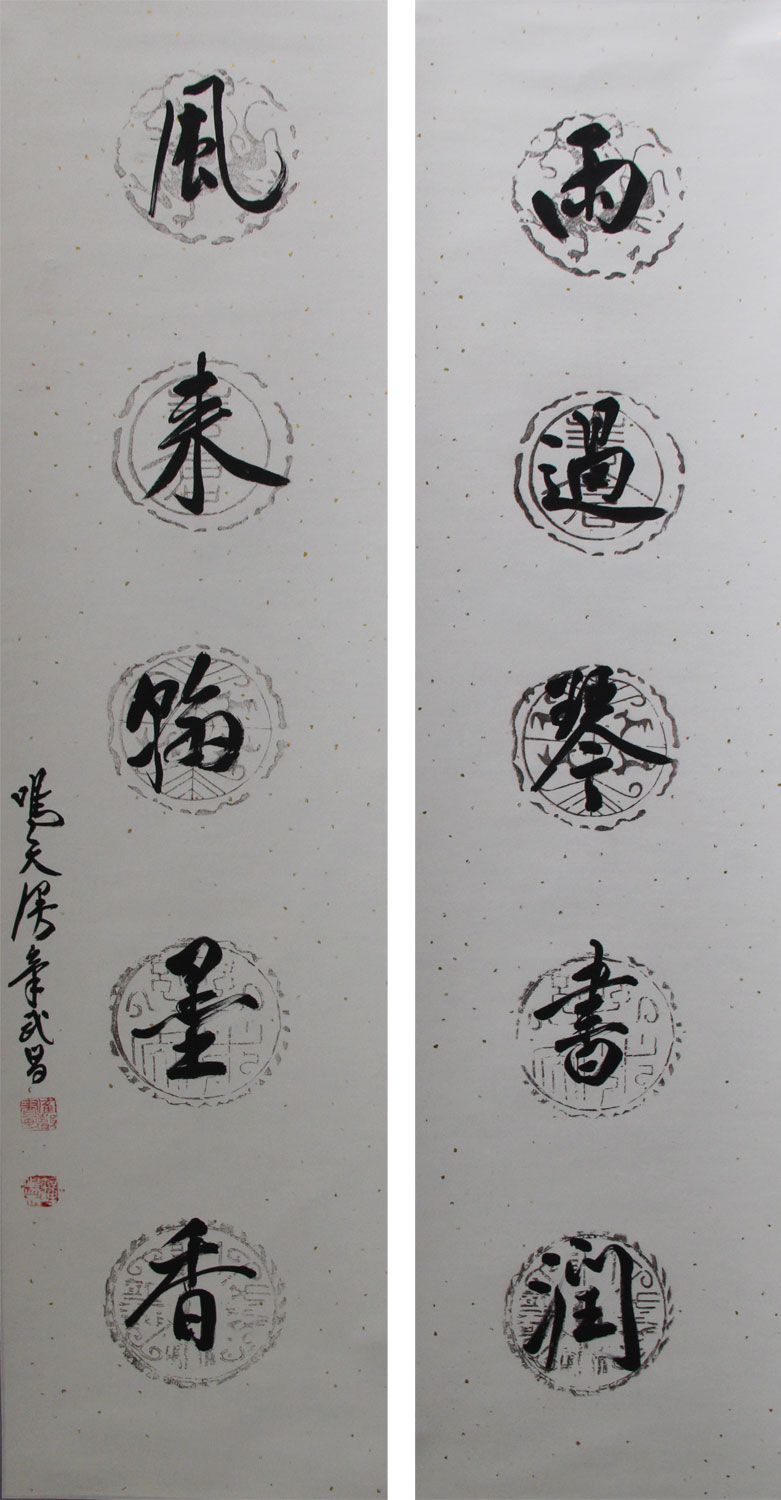 雨過琴書潤
風来翰墨香
鳴天漫筆武昌